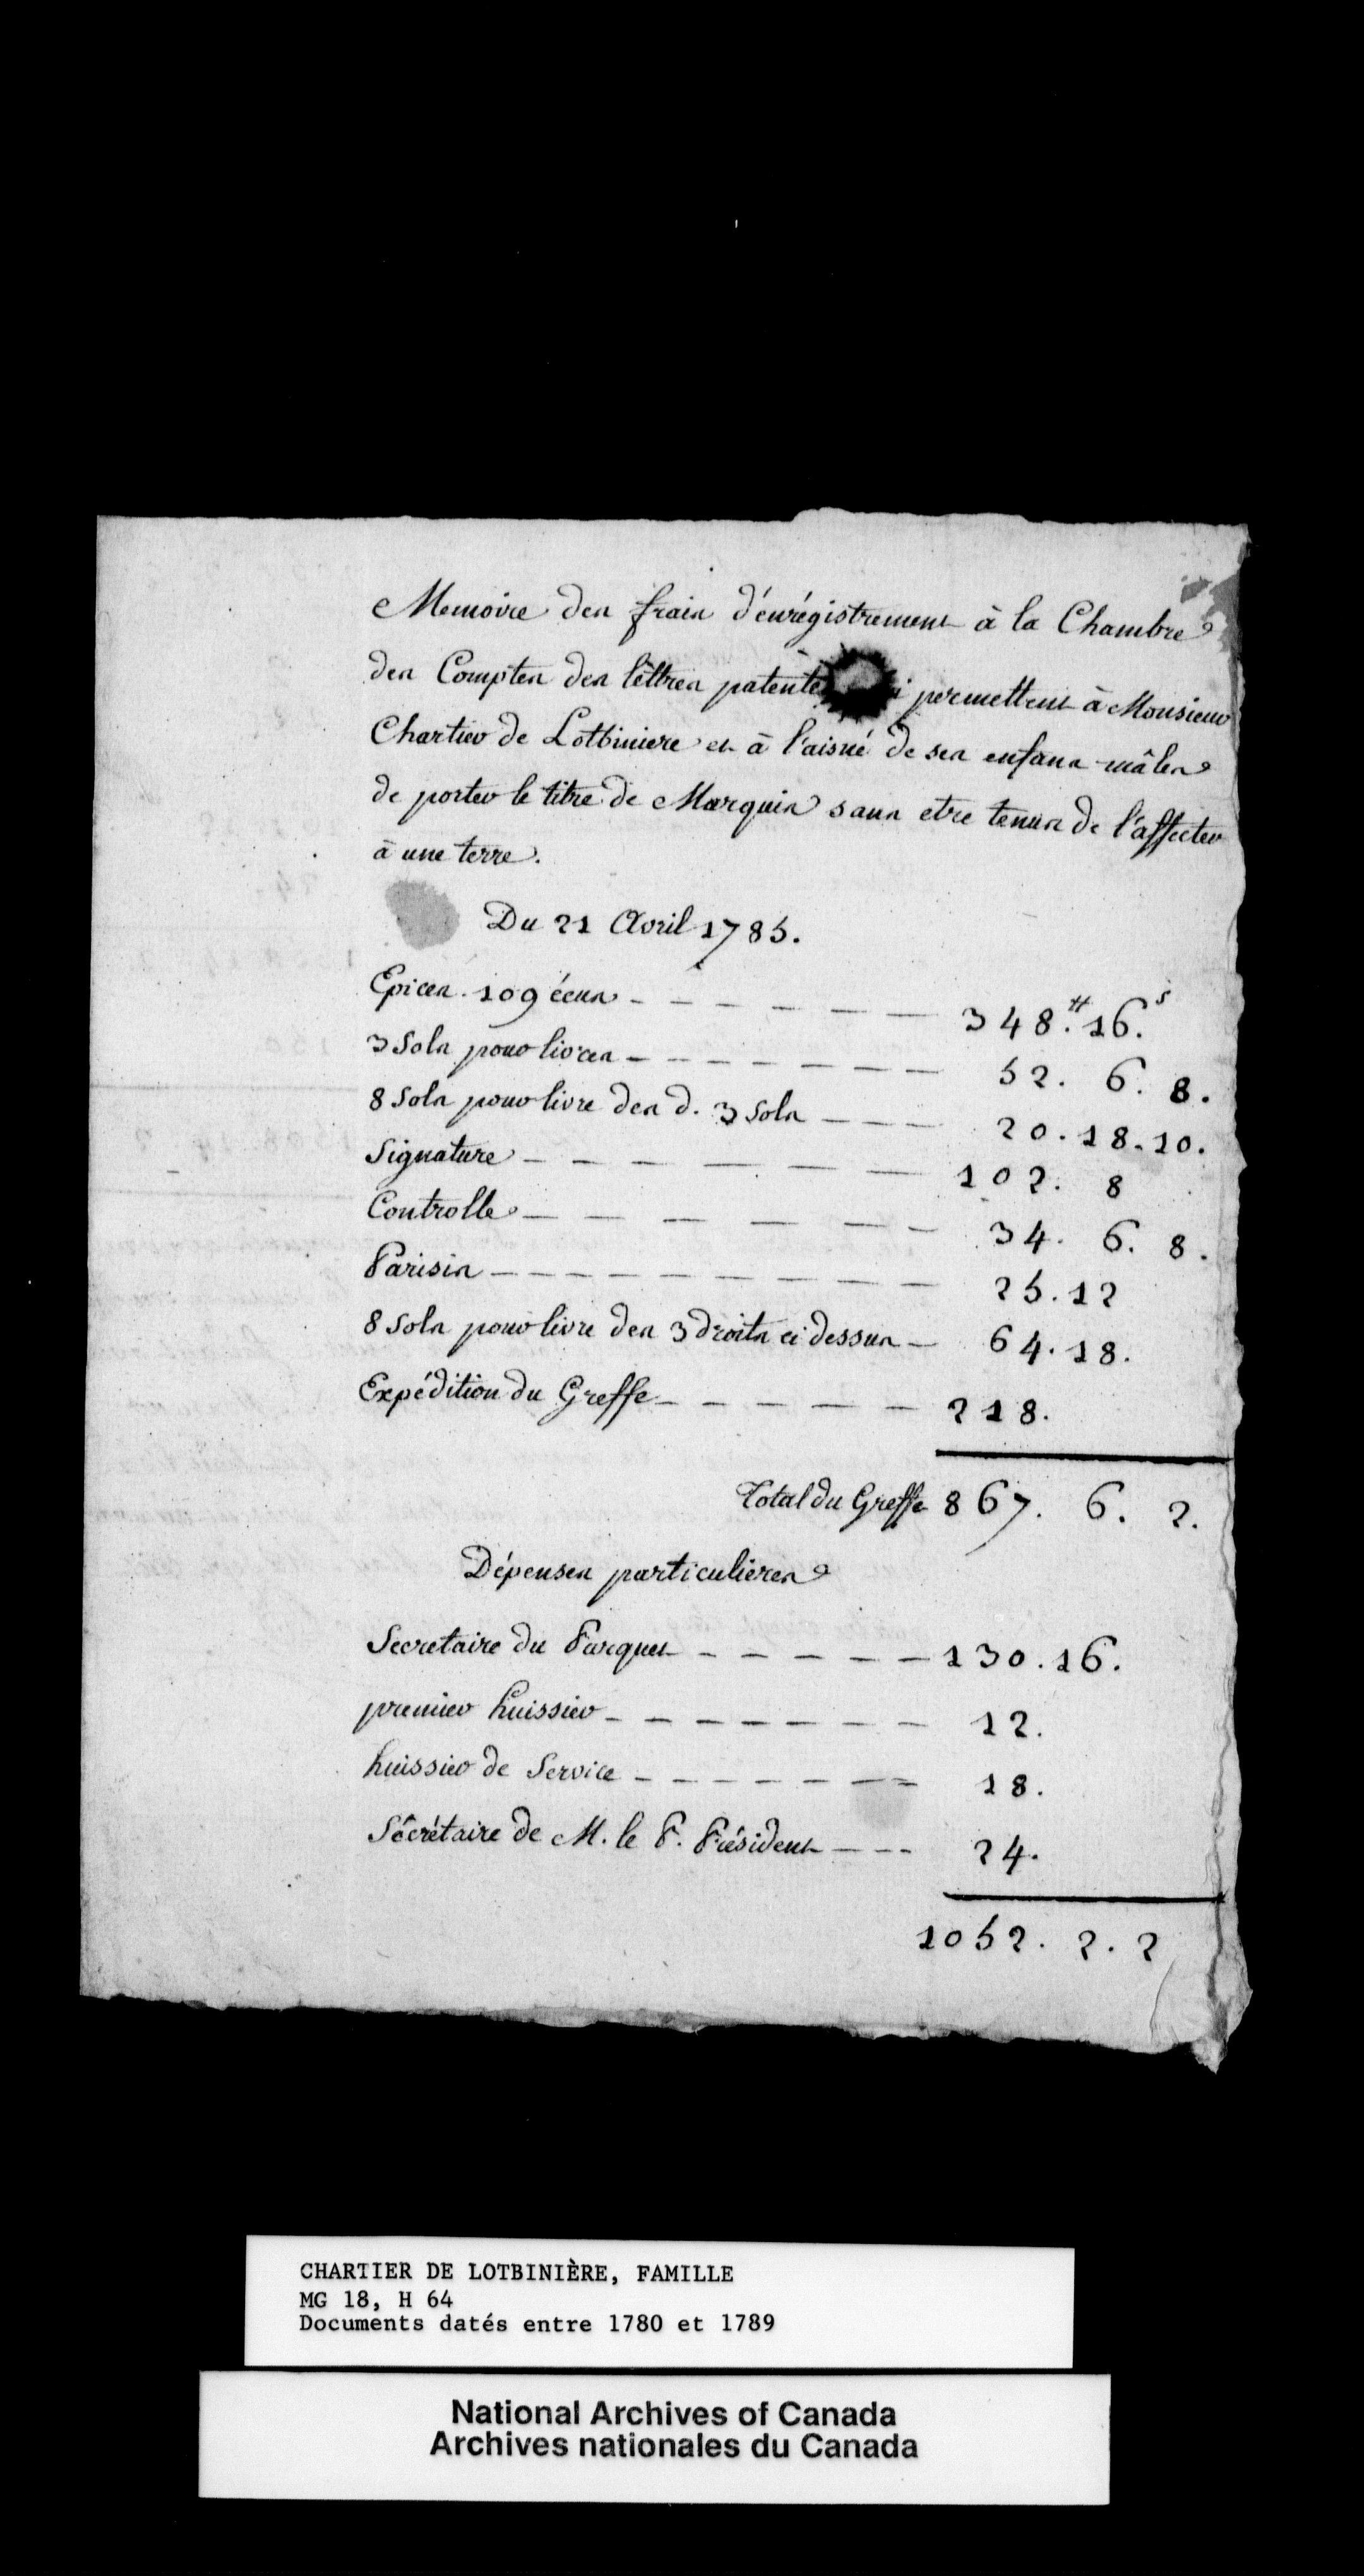 Memoire des frais d'enrégistrement à la Chambre
des Comptes des lêttres patente i permettent à Monsieur
Chartier de Lotbiniere et à l'aisné de ses enfans mâles
de porter le titre de Marquis sans etre tenus de l'affecter
à une terre.
Du 21 Avril 1785.
Epices. 109 écus - - - - - - 348.# 16.s
3 Sols pour livres - - - - - - - 52. 6. 8.
8 Sols pour livre des d. 3 Sols - - - - 20. 18. 10.
Signature - - - - - - - 102. 8
Controlle - - - - - - - 34. 6. 8.
Parisis - - - - - - - - - 25. 12
8 Sols pour livre des 3 droits ci dessus - 64. 18.
Expédition du Greffe - - - - - - 218.
Total du Greffe 867. 6. 2.
Dépenses particulieres
Secretaire du Parquet - - - - - - 130. 16.
premier huissier - - - - - - - - 12.
huissier de Service - - - - - - - 18.
Sécrétaire de M. le P. Président - - - 24.
1052. 2. 2
CHARTIER DE LOTBINIÈRE, FAMILLE
MG 18, H 64
Documents datés entre 1780 et 1789
National Archives of Canada
Archives nationales du Canada